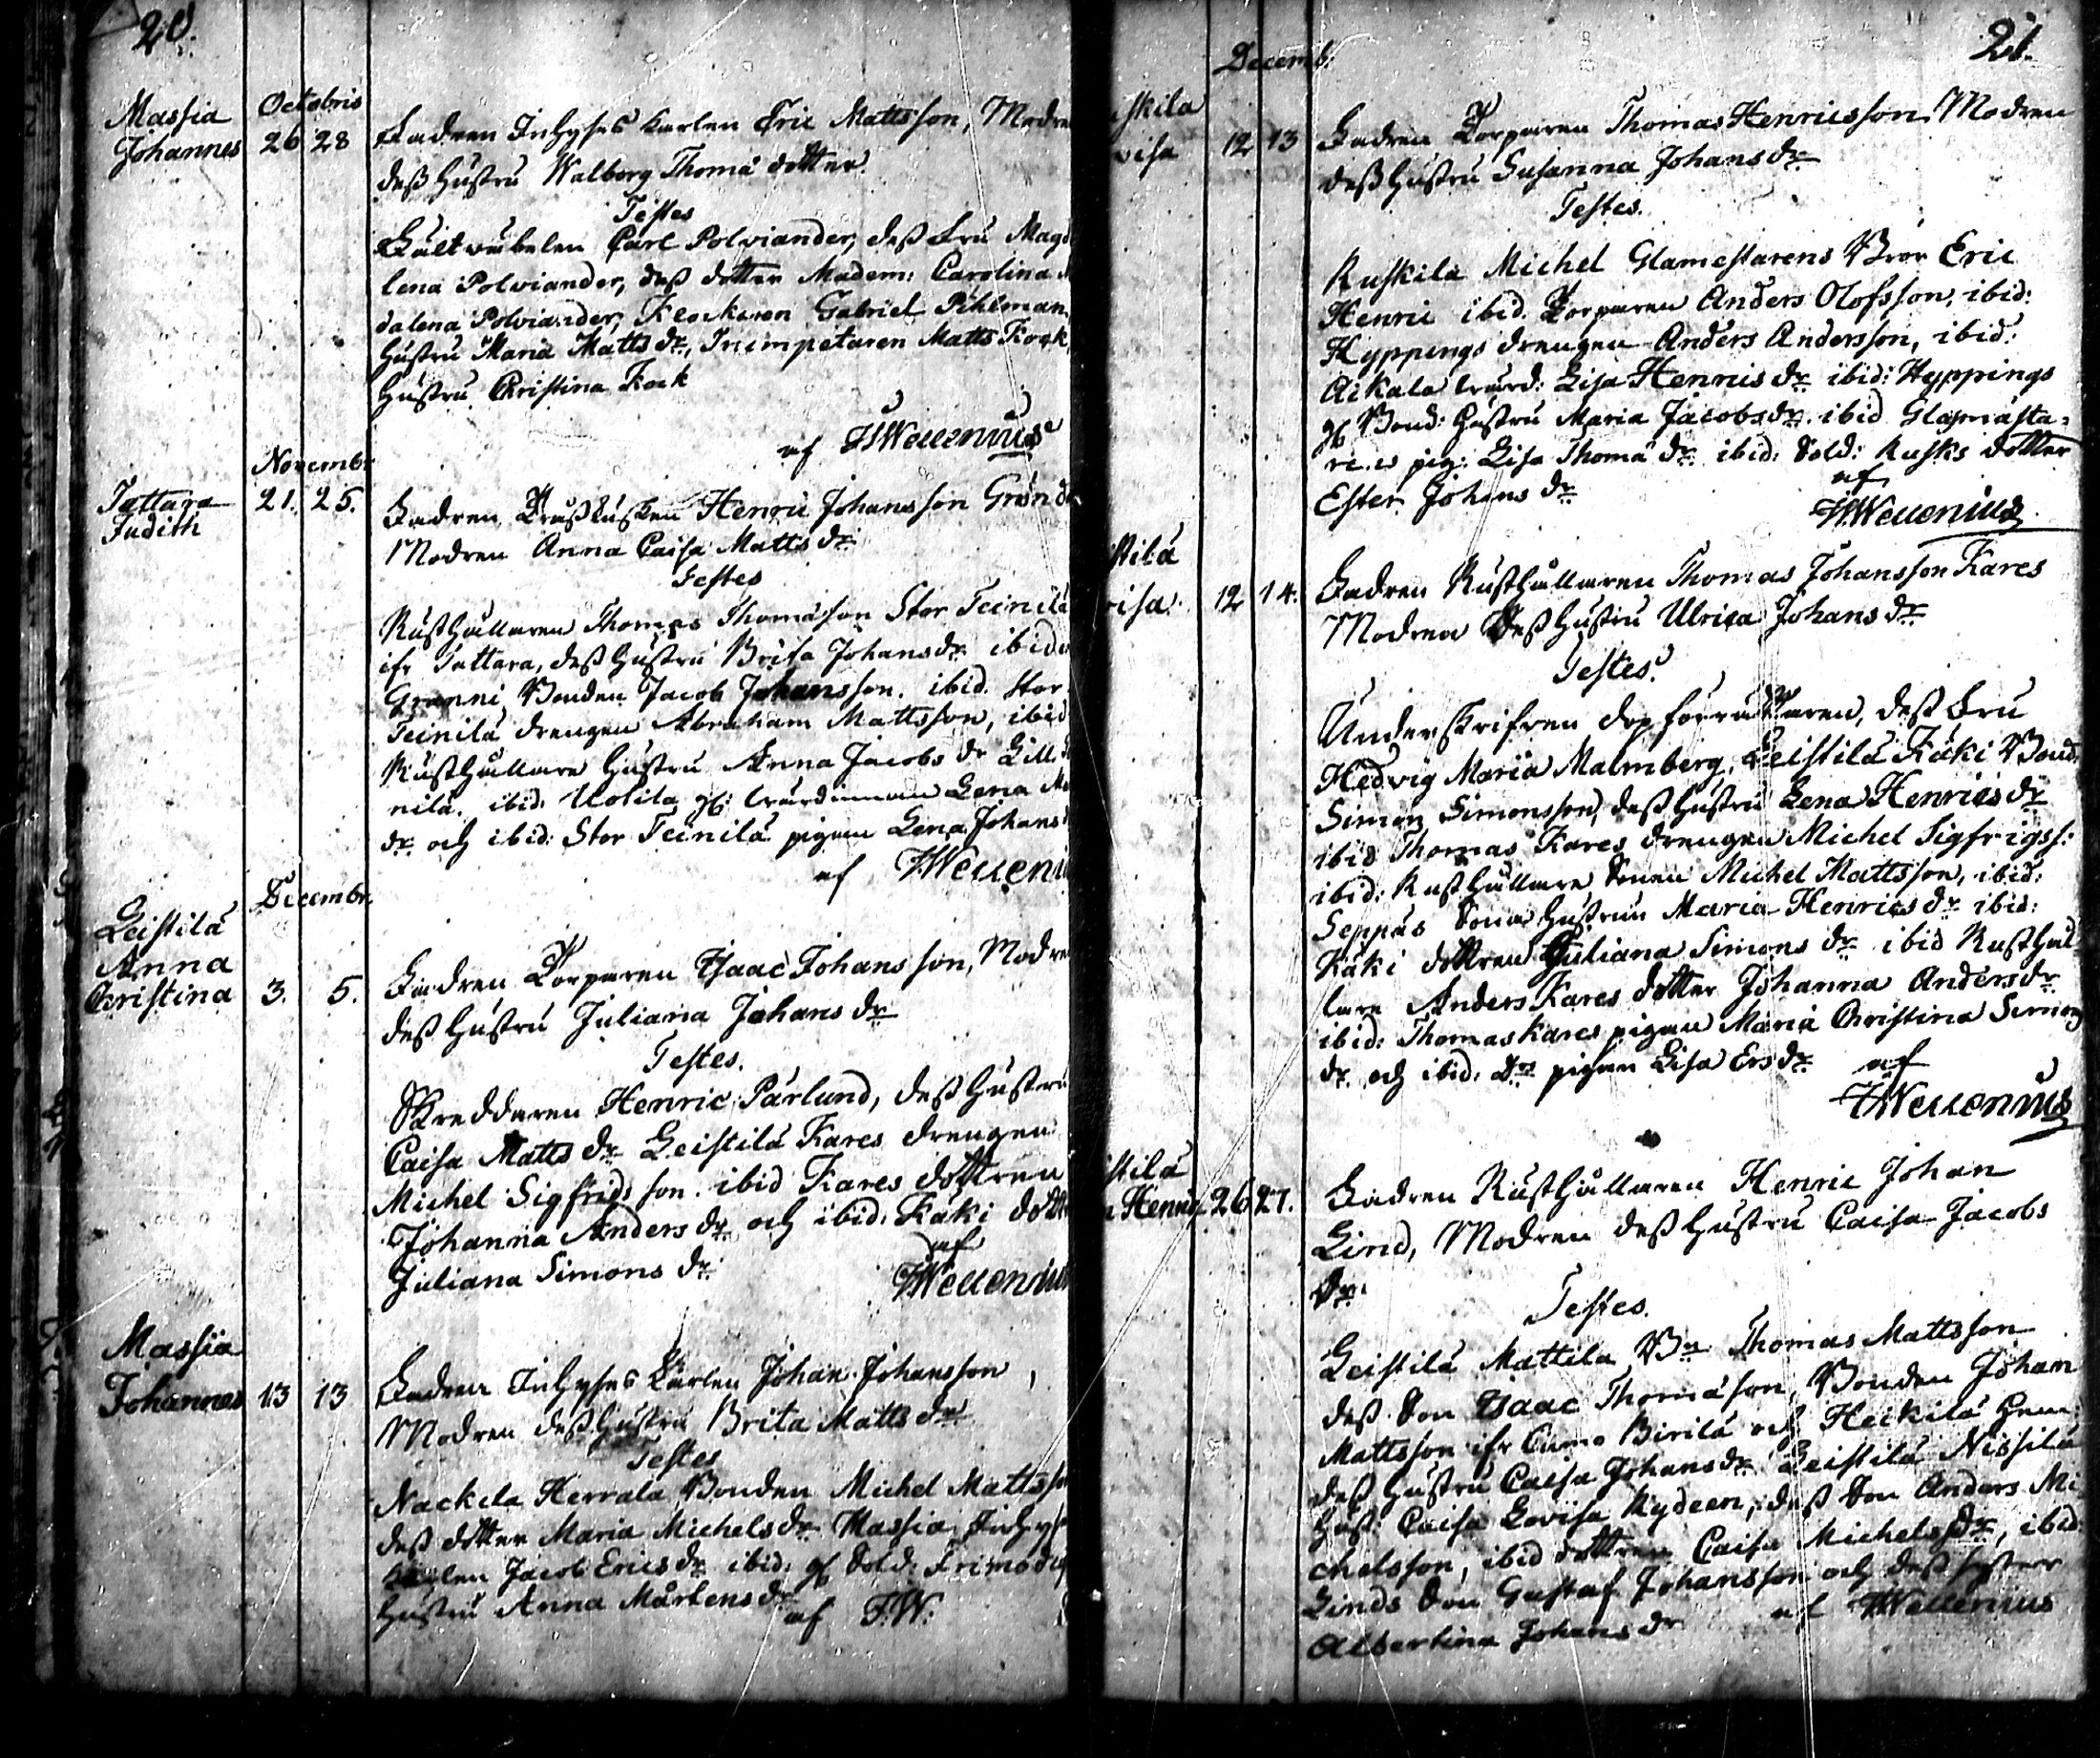 20.
Octobris
Massia
Johannes 26 28 Fadren Inhyses Karlen Eric Mattsson, Modre
deß hustru Walborg Thomæ dotter.
Testes
Fältwäbelen Carl Polviander, deß Fru Magd
lena Polviander, deß dotter Madem: Carolina
dalena Polviander, Klockaren Gabriel Pihlman
hustru Maria Matts dr, Trumpetaren Matts Kock,
hustru Christina Kock
af Wellenius
Novembr
Tattara 21. 25. Fadren Henric Johansson Grönd
Judith
Modren Anna Caisa Matts dr
Testes
Rusthållaren Thomas Thomasson Stor Teinilä
ifr Tattara, deß hustru Brita Johansdr ibid
Granni Bonden Jacob Johansson. ibid. Stor
Teinilä drengen Abraham Mattsson, ibid
Rusthållare hustru Anna Jacobs dr Lill
nilä. ibid: Uotila gl: wärdinnan Lena
dr och ibid: Stor Teinilä pigan Lena Johans
af Welleni
Decembr.
Leistilä
Anna
Christina 3. 5. Fadren Torparen Isaac Johansson, Modre
deß hustru Juliana Johans dr
Testes.
Skreddaren Henric Pärlund, deß hustru
Caisa Matts dr Leistilä Kares drengen
Michel Sigfrids son. ibid Kares dottren
Johanna Anders dr och ibid: Käki dott
Juliana Simons dr
af
Wellenius
Massia
Johannes 13 13 Fadren Inhyses Karlen Johan Johansson,
Modren deß hustru Brita Matts dr
Testes
Nackila Herrala Bonden Michel Mattsso
deß dotter Maria Michels dr Massia Inhys
karlen Jacob Erics dr ibid: gl Sold: Frimodig
hustru Anna Mårtens dr
af F.W:
21.
Decemb:
skila
visa 12 13 Fadren Torparen Thomas Henricsson, Modren
deß hustru Susanna Johans dr
Testes.
Ruskila Michel Glamestarens Bror Eric
Henric ibid. Torparen Anders Olofsson, ibid:
Hyppings drengen Anders Andersson, ibid:
Aikala wärd: Lisa Henrics dr ibid: Hyppings
gl Bond: hustru Maria Jacobsdr. ibid Glasmästa=
rens pig: Lisa Thomæ dr ibid: Sold: Rusks dotter
Ester Johans dr
af
Wellenius
stilä
isa. 12 14. Fadren Rusthållaren Thomas Johansson Kares
Modren Deß hustru Ulrica Johans dr
Testes.
Underskrifven dopförrättaren, deß Fru
Hedvig Maria Malmberg, Leistilä Käki Bond
Simon Simonsson, deß hustru Lena Henrics dr
ibid Thomas Kares drengen Michel Sigfrigss:
ibid: Rusthållare Sonen Michel Mattsson, ibid:
Seppäs Sona hustrun Maria Henrics dr ibid:
Käki dottren Juliana Simons dr ibid Rusthål
lare Anders Kares dotter Johanna Andersdr
ibid: Thomas Kares pigan Maria Christina Simons
dr och ibid: Do pigan Lisa Ersdr
af
Wellenius
stilä
Henric 26 27. Fadren Rusthållaren Henric Johan
Lind, Modren deß hustru Caisa Jacobs
Dr.
Testes.
Leistilä Mattila Bn Thomas Mattsson
deß Son Isaac Thomæson, Bonden Johan
Mattsson ifr Cumo Birilä och Heikilä hem:
deß hustru Caisa Johansdr. Leistilä Nissilä
hust: Caisa Lovisa Rydeen, deß Son Anders Mi
chelsson, ibid dottren Caisa Michelsdr, ibid
Linds Son Gustaf Johansson och deß syster
Albertina Johans dr af Wellenius